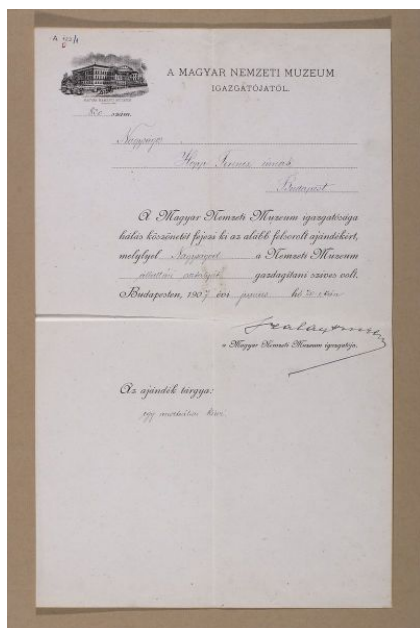 A MAGYAR NEMZETI MUZEUM
IGAZGATÓJÁTÓL.
szám.
Nagyságos
Hopp Ferencz úrnak
Budapest
A Magyar Nemzeti Muzeum igazgatósága
hálás köszönetét fejezi ki az alább felsorolt ajándékért,
melylyel Nagyságod a Nemzeti Muzeum
állattári osztályát gazdagítani szives volt.
Budapesten, 1907 évi hó 20-ikán
a Magyar Nemzeti Muzeum igazgatója.
Az ajándék tárgya:
egy